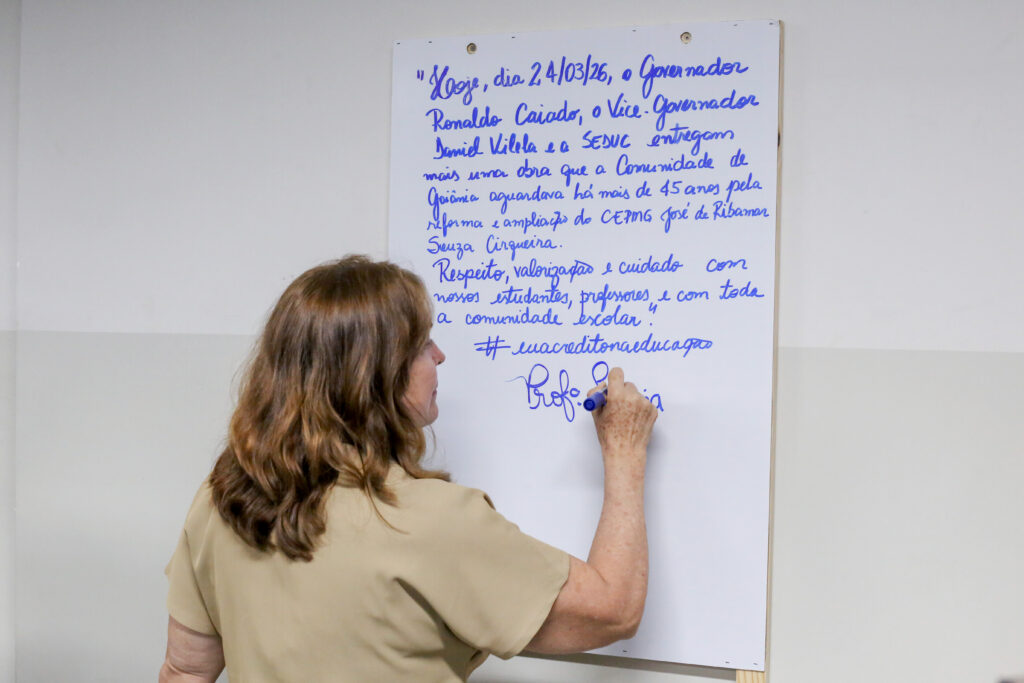 "Hoje, dia 24/03/26, o Governador
Ronaldo Caiado, o Vice-Governador
Daniel Vilela e a SEDUC entregam
mais uma obra que a Comunidade de
Goiânia aguardava há mais de 45 anos pela
reforma e ampliação do CEPMG José de Ribamar
Souza Cirqueira.
Respeito, valorização e cuidado com
nossos estudantes, professores, e com toda
a comunidade escolar."
#euacreditonaeducação
Profª.